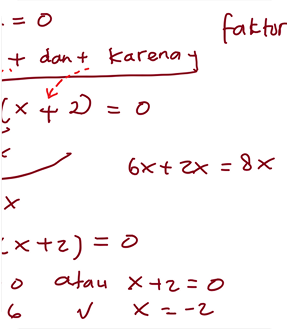 . = 0
faktor
+ dan + karena
(x + 2) = 0
6x + 2x = 8x
x
(x+2) = 0
0 atau x+2 = 0
6 √ x = -2